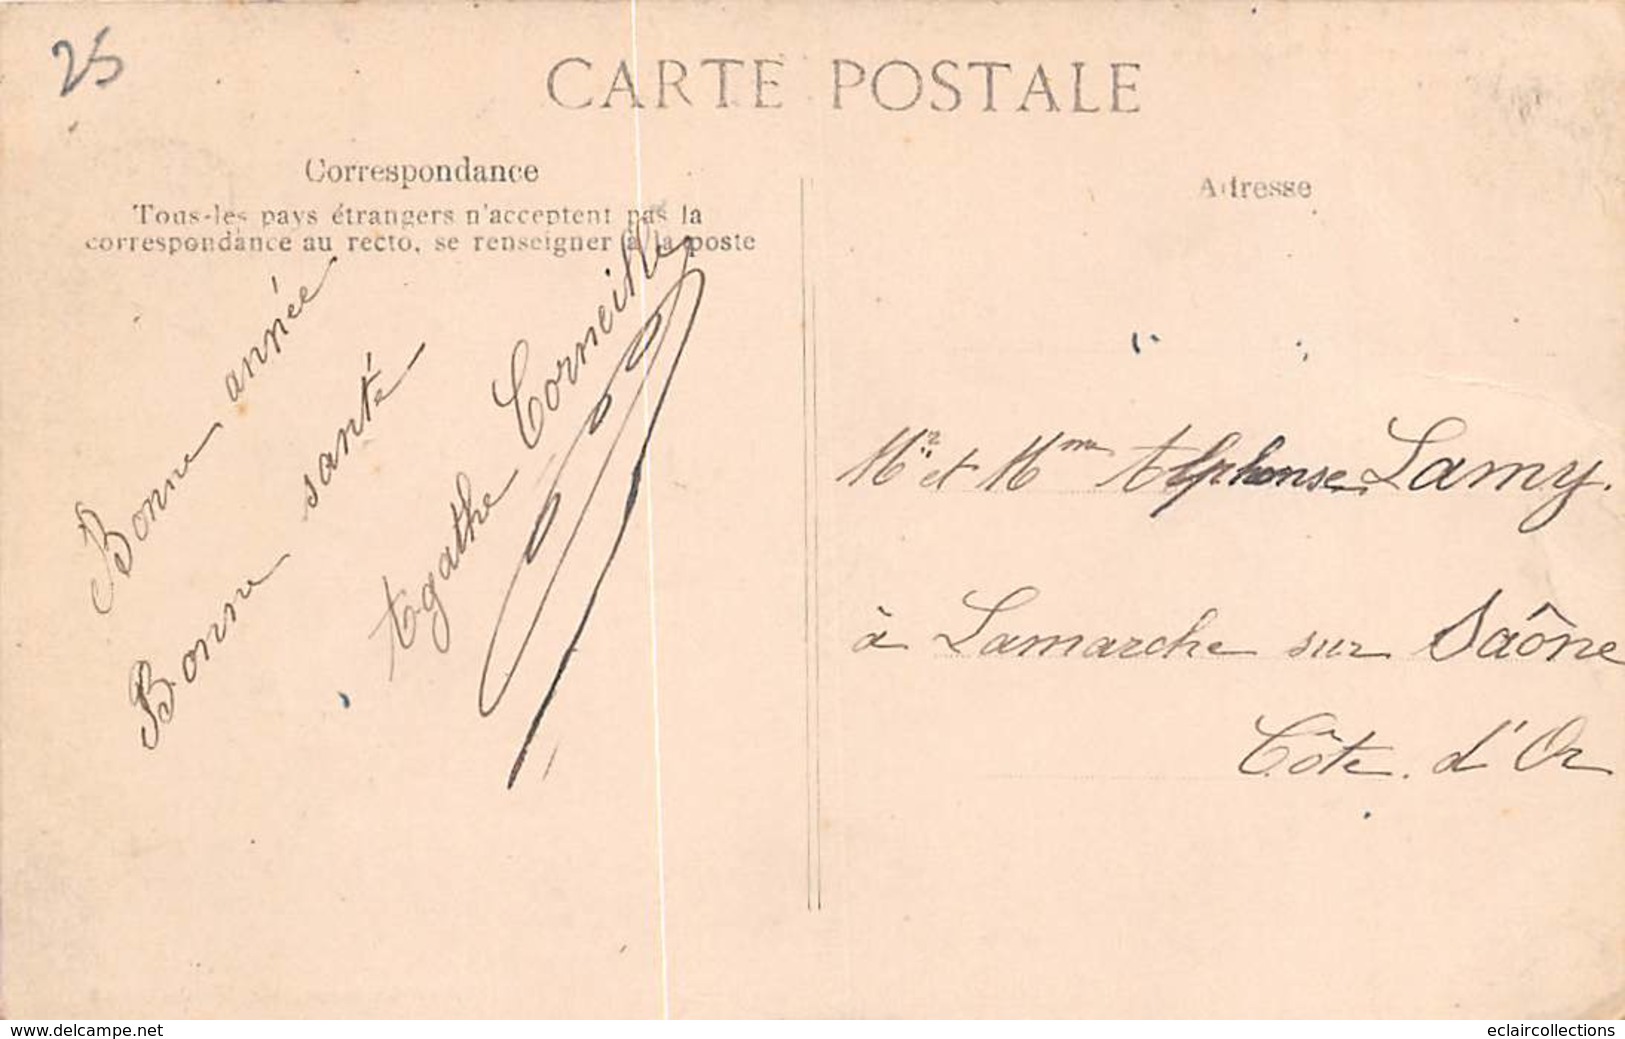 25
CARTE POSTALE
Correspondance
Tous les pays étrangers n'acceptent pas la
correspondance au recto, se renseigner à la poste
Bonne année
Bonne santé
Agathe Corneille
Adresse
Mr et Mme Alphonse Lamy.
à Lamarche sur Saône
Côte d'Or
www.delcampe.net
eclaircollections